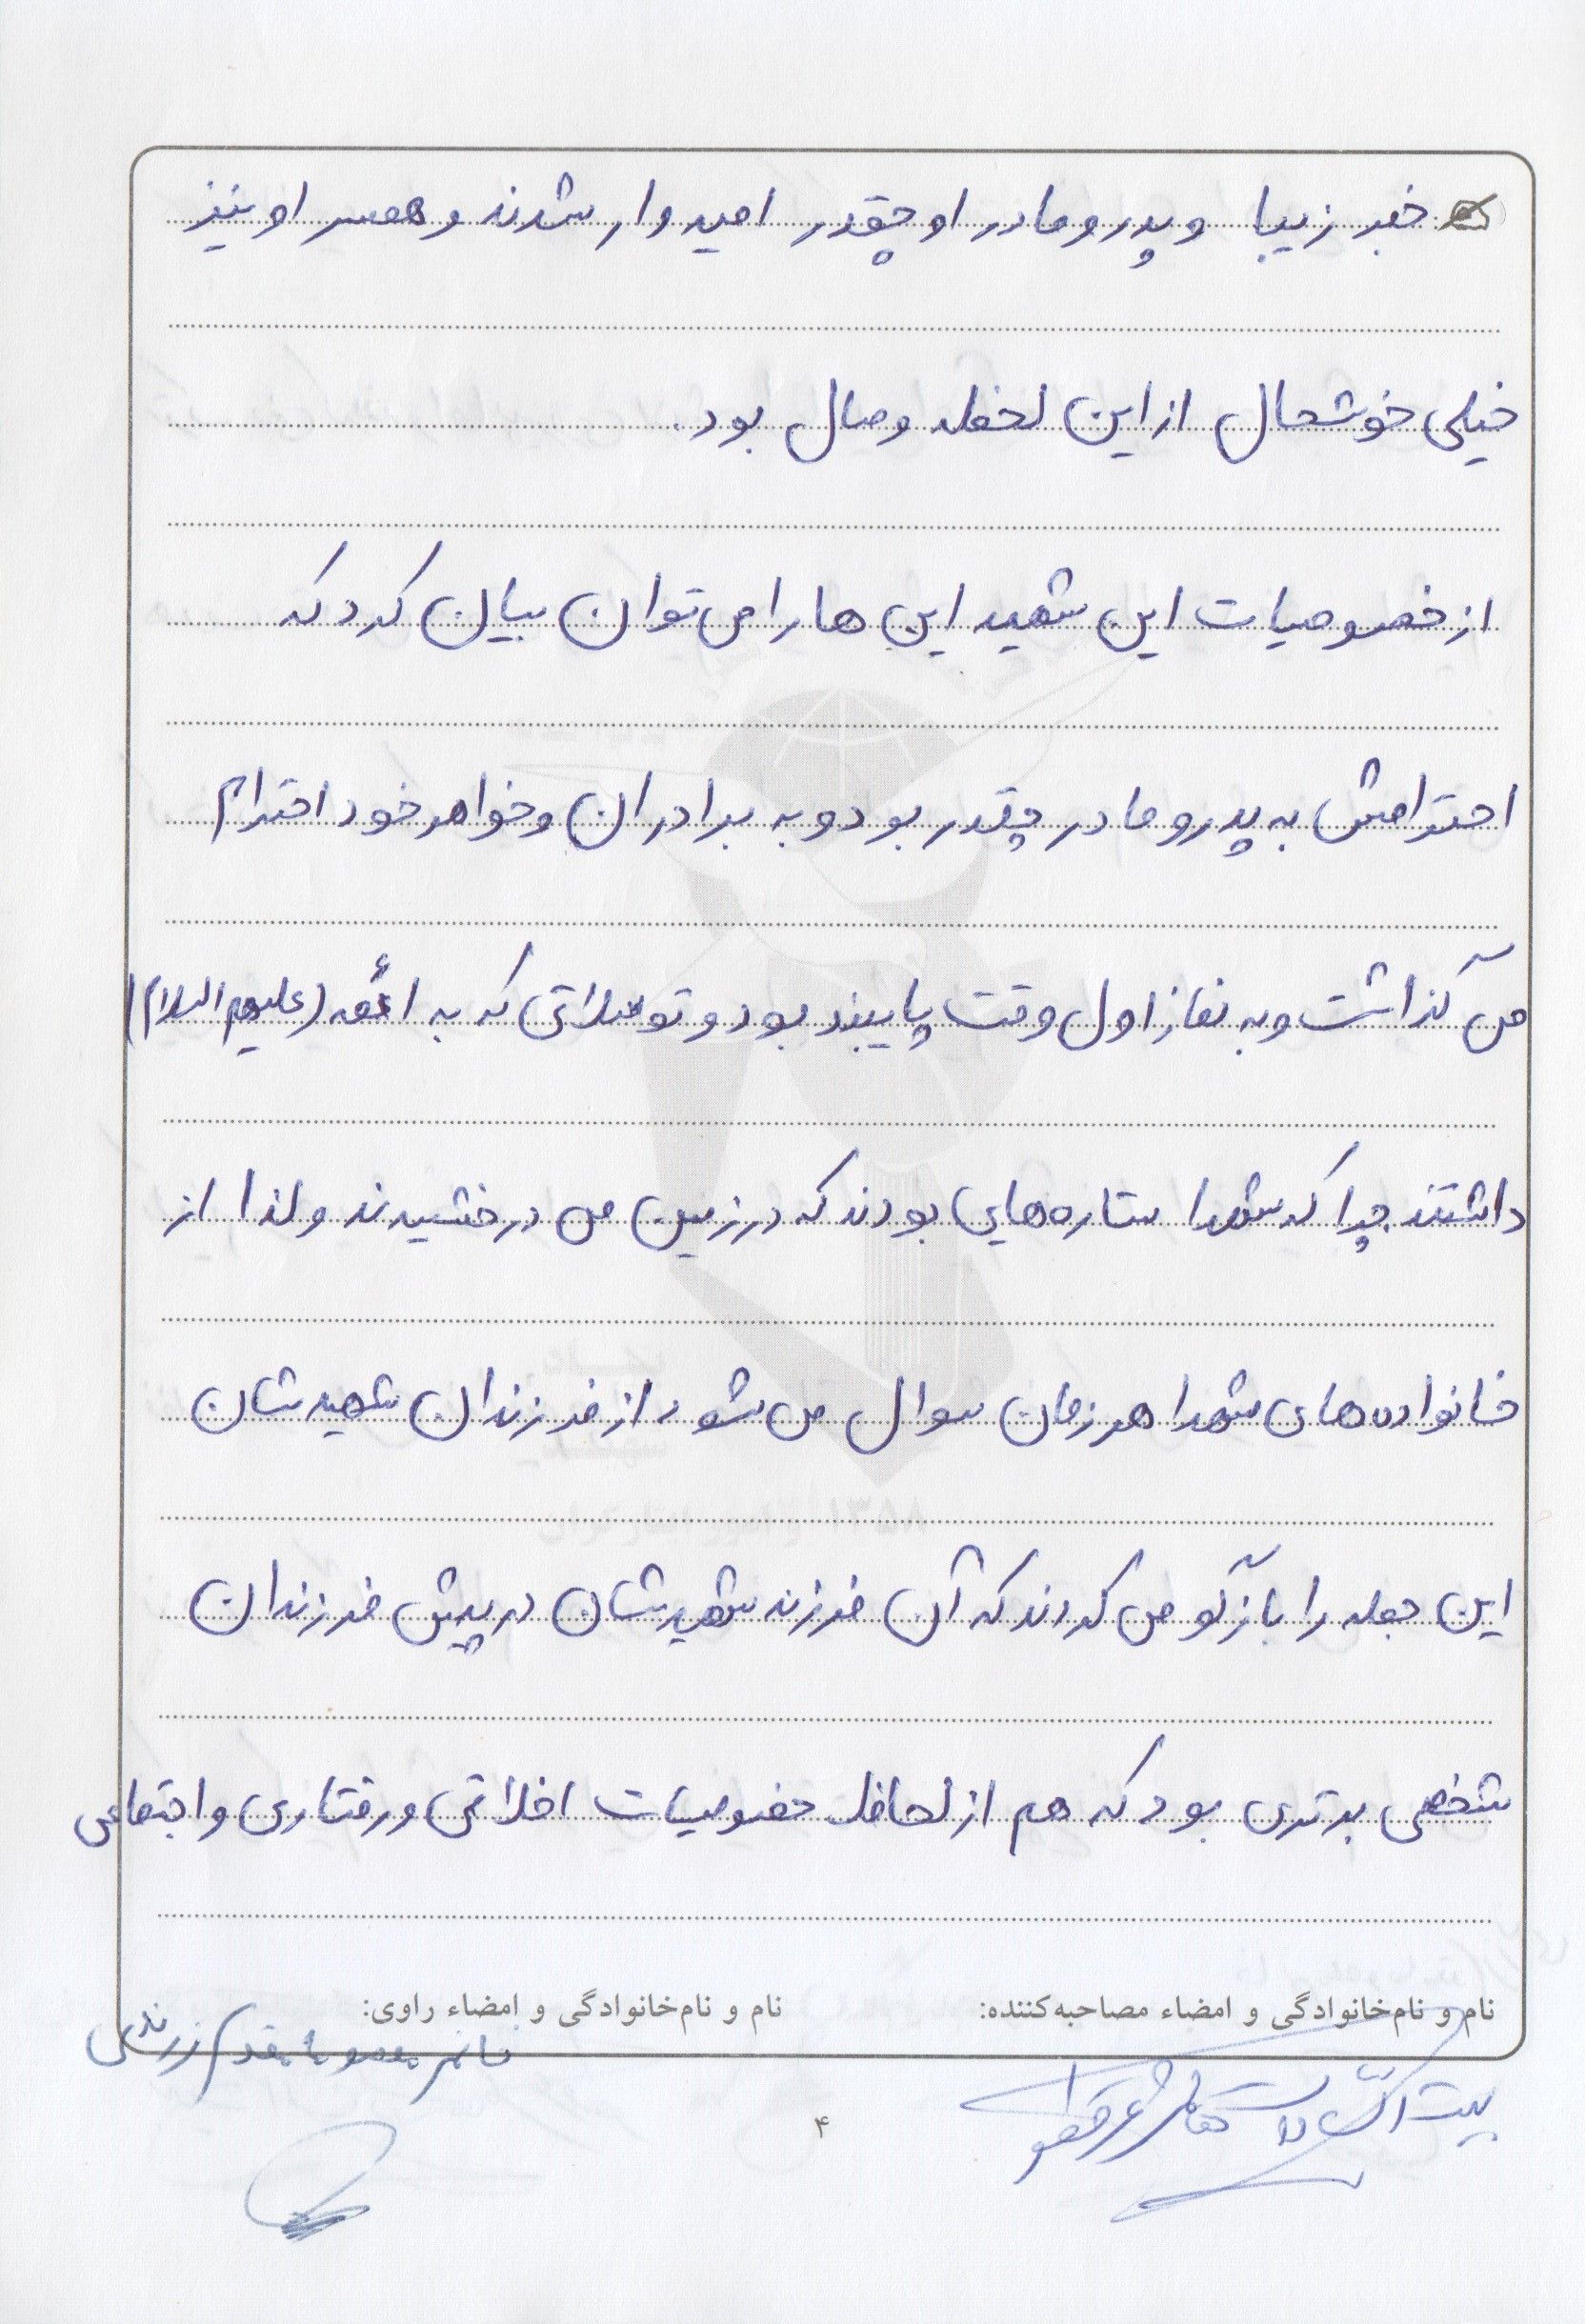 خبر زیبا و پدر و مادر او چقدر امیدوار شدند و همسر او نیز
خیلی خوشحال از این لحظه وصال بود.
از خصوصیات این شهید این ها را می توان بیان کرد که
احترامش به پدر و مادر چقدر بود و به برادران و خواهر خود احترام
می گذاشت و به نماز اول وقت پایبند بود و توسلاتی که به ائمه (علیهم السلام)
داشتند چرا که شهدا ستاره هایی بودند که در زمین می درخشیدند و لذا از
خانواده های شهدا هر زمان سوال می شود از فرزندان شهیدشان
این جمله را بازگو می کردند که آن فرزند شهیدشان در پیش فرزندان
شخصی برتری بود که هم از لحاظ خصوصیات اخلاقی و رفتاری و اجتماعی
نام و نام‌خانوادگی و امضاء مصاحبه‌کننده:
نام و نام‌خانوادگی و امضاء راوی:
۴